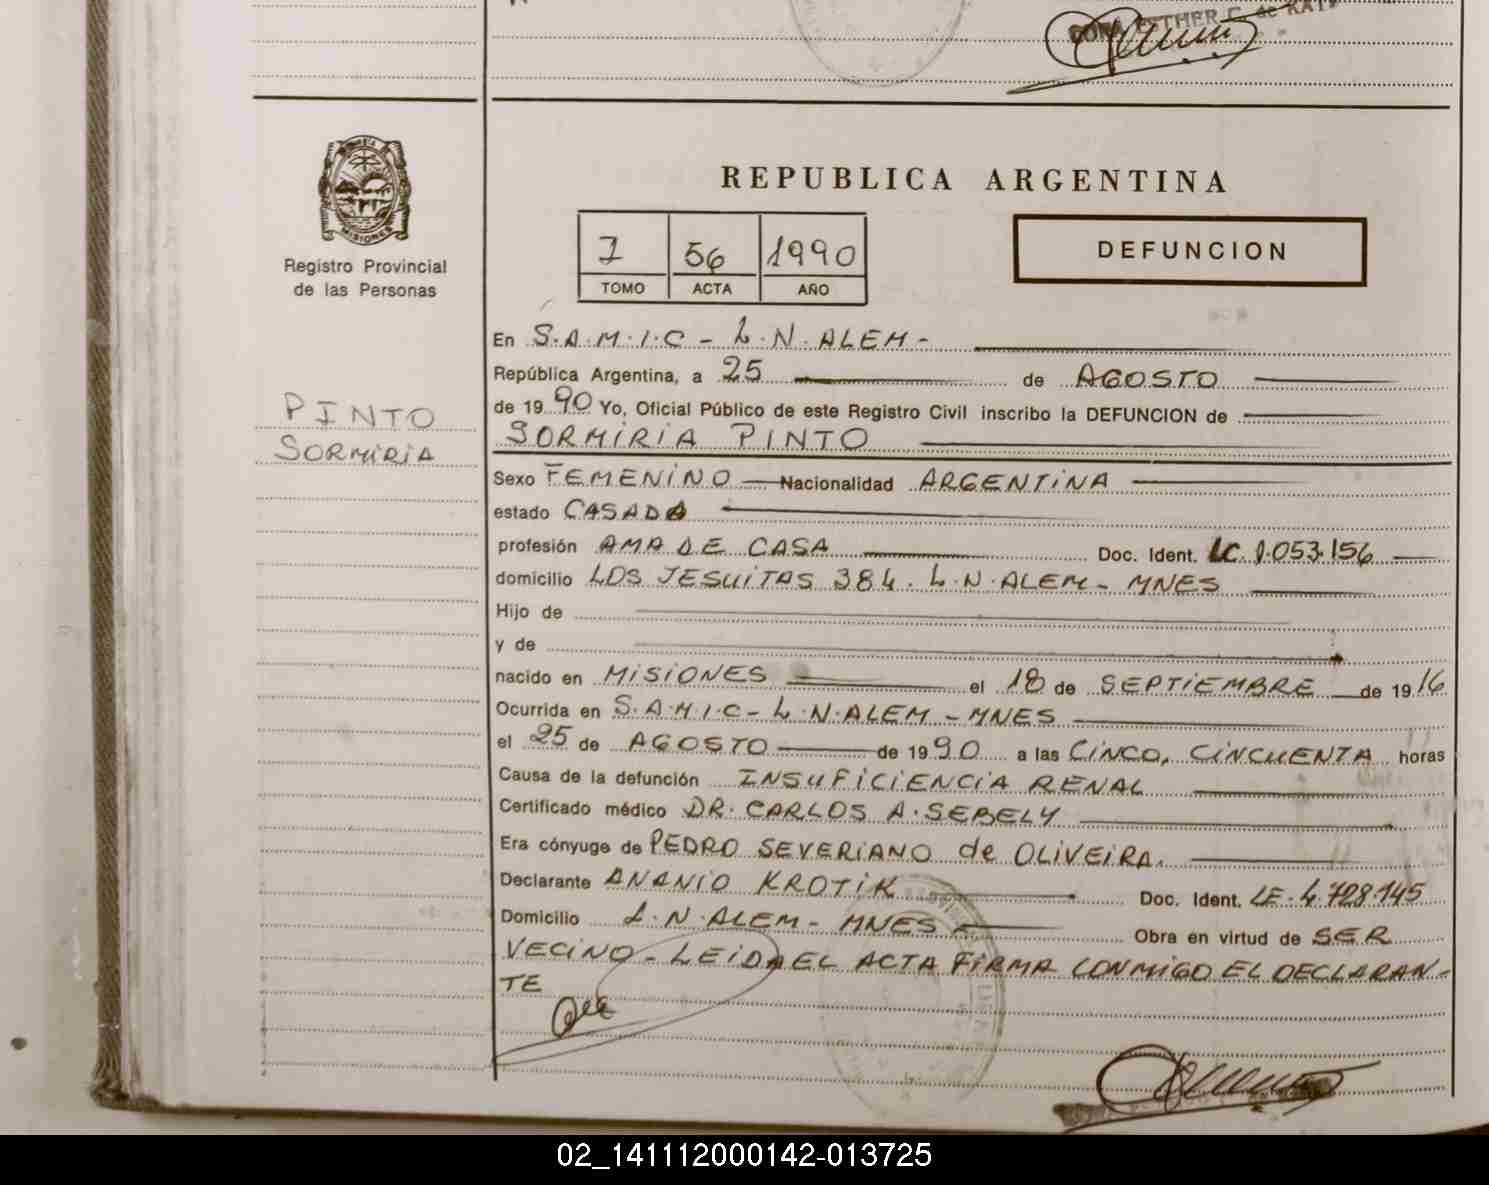 ESTHER C. de KATZ
REPUBLICA ARGENTINA
MISIONES
Registro Provincial
de las Personas
1 56 1990
TOMO ACTA AÑO
DEFUNCION
PINTO
SORMIRIA
En S.A.M.I.C - L.N.ALEM -
República Argentina, a 25 de AGOSTO
de 1990 Yo, Oficial Público de este Registro Civil inscribo la DEFUNCION de
SORMIRIA PINTO
Sexo FEMENINO Nacionalidad ARGENTINA
estado CASADA
profesión AMA DE CASA Doc. Ident. LC. 1.053.156
domicilio LOS JESUITAS 384. L.N.ALEM - MNES
Hijo de
y de
nacido en MISIONES el 18 de SEPTIEMBRE de 1916
Ocurrida en S.A.M.I.C - L.N.ALEM - MNES
el 25 de AGOSTO de 1990 a las CINCO, CINCUENTA horas
Causa de la defunción INSUFICIENCIA RENAL
Certificado médico DR. CARLOS A. SEBELY
Era cónyuge de PEDRO SEVERIANO de OLIVEIRA.
Declarante ANANIO KROTIK Doc. Ident. LE. 4.728.145
Domicilio L.N.ALEM - MNES - Obra en virtud de SER
VECINO - LEIDA EL ACTA FIRMA CONMIGO EL DECLARAN-
TE
02_141112000142-013725